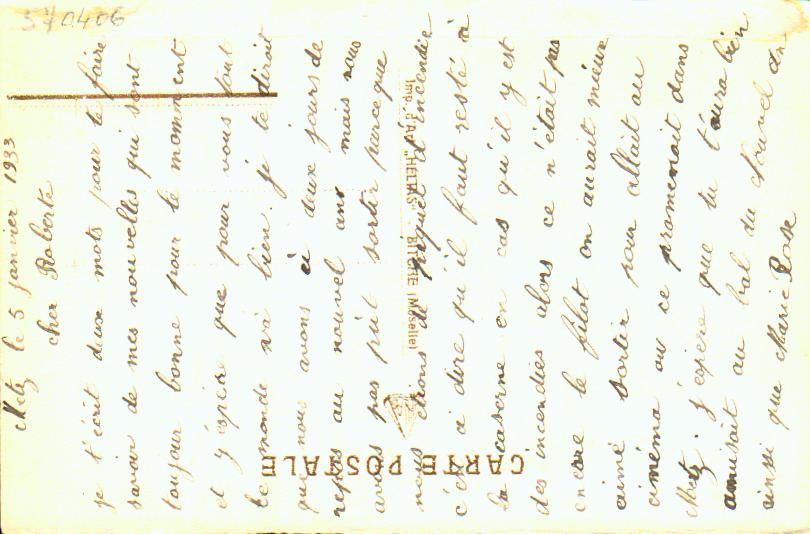 570406
Metz le 5 Janvier 1933
cher Roberte
je t'écrit deux mots pour te faire
savoir de mes nouvelles qui sont
toujour bonne pour le momment
et j'éspère que pour vous tout
le monde va bien. je te dirait
que nous avons eu deux jours de
repos au nouvel an mais nous
avons pas put sortir parce que
nous étions de piquet d'incendie
c'est a dire qu'il faut resté a
la caserne en cas qu'il y est
des incendies alors ce n'était pas
encore le filot on aurait mieux
aimé sortir pour allait au
cinéma ou ce promenait dans
Metz. j'éspère que tu t'aura bien
amusait au bal du Nouvel an
ainsi que Marie Rose
CARTE POSTALE
Imp. d'Art "HELMS" BITCHE (Moselle)